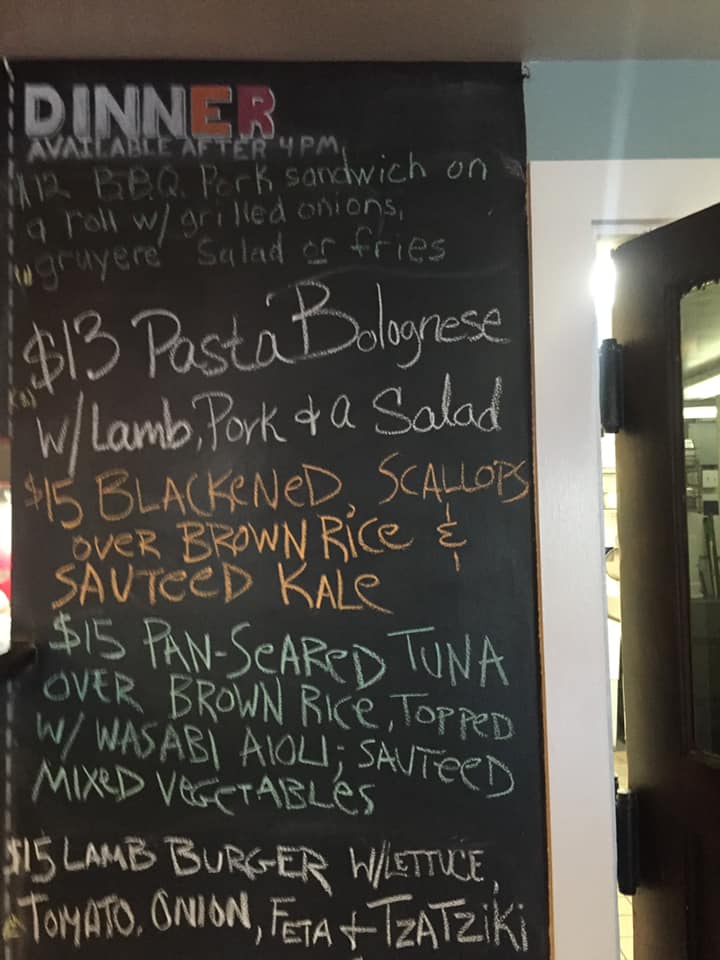 DINNER
AVAILABLE AFTER 4PM
$12 B.B.Q. Pork sandwich on
a roll w/ grilled onions,
gruyere Salad or fries
$13 Pasta Bolognese
w/ Lamb, Pork & a Salad
$15 BLACKENED SCALLOPS
OVER BROWN RICE &
SAUTEED KALE
$15 PAN-SEARED TUNA
OVER BROWN RICE, TOPPED
W/ WASABI AIOLI; SAUTEED
MIXED VEGETABLES
$15 LAMB BURGER W/LETTUCE,
TOMATO, ONION, FETA + TZATZIKI